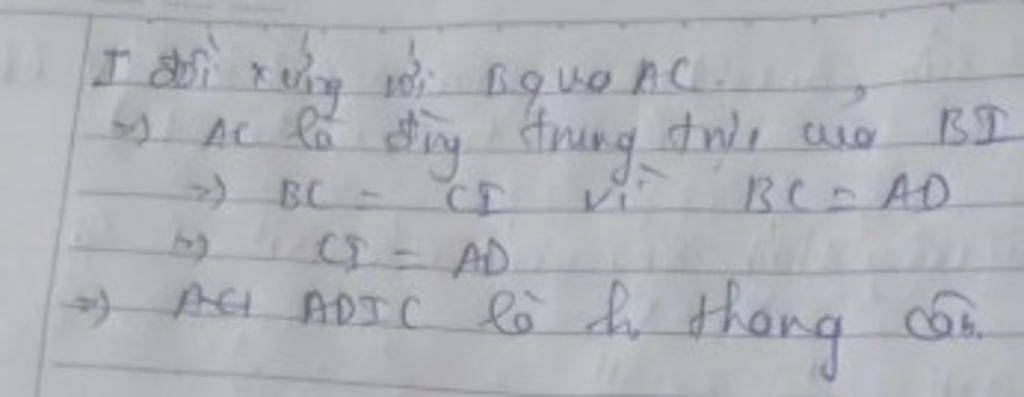 I đối xứng với B qua AC.
=> AC là đường trung trực của BI
=> BC = CI vì BC = AD
=> CI = AD
=> ADIC là h thang cân.